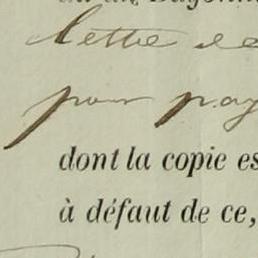 lettre de
pour pay
dont la copie es
à défaut de ce,